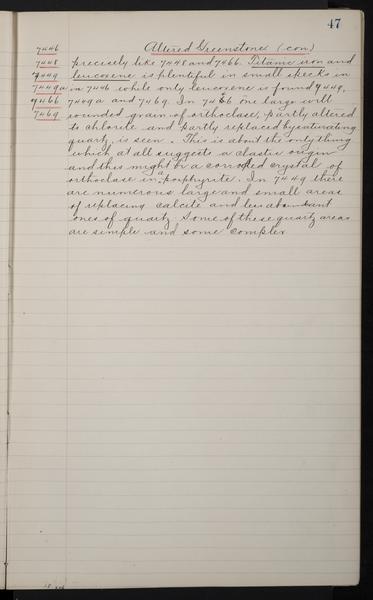 47
7446 Altered Greenstone (con)
7448 precisely like 7448 and 7466. Titanic iron and
7449 leucoxene is plentiful in small specks in
7449a in 7446 while only leucoxene is found 7449,
7466 7449a and 7469. In 7466 one large well
7469 rounded grain of orthoclase, partly altered
to chlorite and partly replaced by saturating
quartz is seen. This is about the only thing
which at all suggests a clastic origin
and this might be a corroded crystal of
orthoclase in a porphyrite. In 7449 there
are numerous large and small areas
of replacing calcite and less abundant
ones of quartz. Some of these quartz areas
are simple and some complex